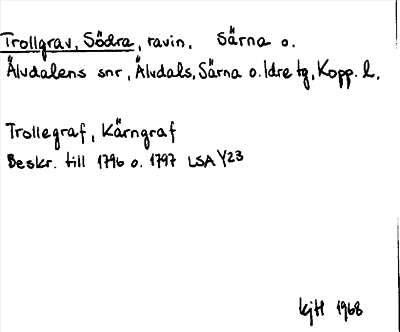 Trollgrav, Södra, ravin. Särna o.
Älvdalens snr, Älvdals, Särna o. Idre tg, Kopp. l.
Trollegraf, Kärngraf
Beskr. till 1796 o. 1797 LSA Y23
kjH 1968